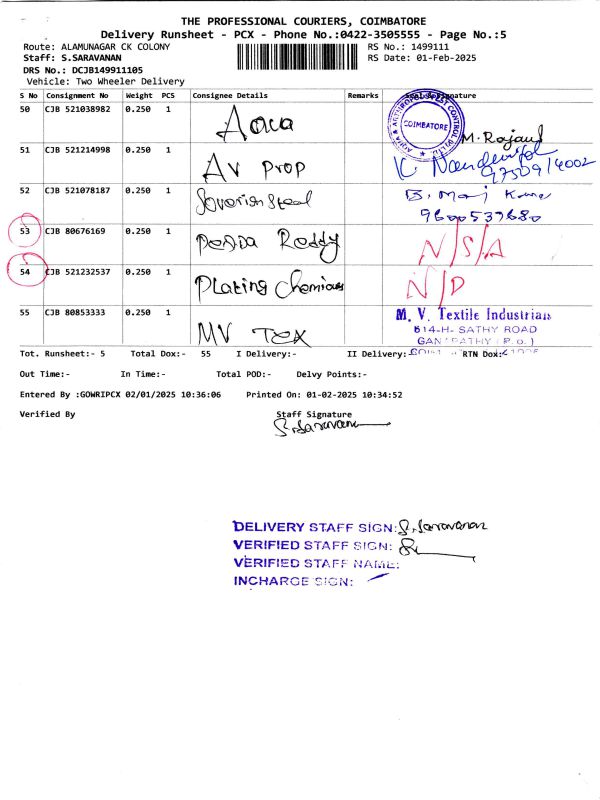 THE PROFESSIONAL COURIERS, COIMBATORE
Delivery Runsheet - PCX - Phone No.:0422-3505555 - Page No.:5
Route: ALAMUNAGAR CK COLONY RS No.: 1499111
Staff: S.SARAVANAN RS Date: 01-Feb-2025
DRS No.: DCJB149911105
Vehicle: Two Wheeler Delivery
S No Consignment No Weight PCS Consignee Details Remarks Signature
50 CJB 521038982 0.250 1 Aqua COIMBATORE M. Rajaul
51 CJB 521214998 0.250 1 AV Prop
52 CJB 521078187 0.250 1 Steel 9600537680
53 CJB 80676169 0.250 1 Reddy N/S/A
54 CJB 521232537 0.250 1 Plating Chemicals N/D
55 CJB 80853333 0.250 1 MV TEX M. V. Textile Industrials
614-H- SATHY ROAD
GANAPATHY (P.o.)
Tot. Runsheet:- 5 Total Dox:- 55 I Delivery:- II Delivery: RTN Dox:
Out Time:- In Time:- Total POD:- Delvy Points:-
Entered By :GOWRIPCX 02/01/2025 10:36:06 Printed On: 01-02-2025 10:34:52
Verified By Staff Signature
S. Saravanan
DELIVERY STAFF SIGN: S. Saravanan
VERIFIED STAFF SIGN:
VERIFIED STAFF NAME:
INCHARGE SIGN: